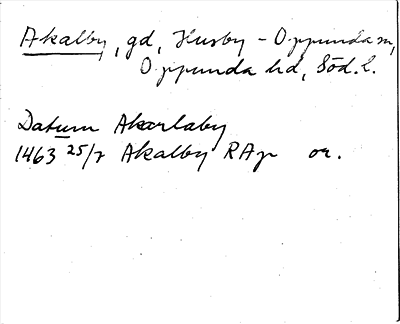 Akalby, gd, Husby - Oppunda sn,
Oppunda hd, Söd. l.
Datum Akarlaby
1463 25/7 Akalby RAp or.